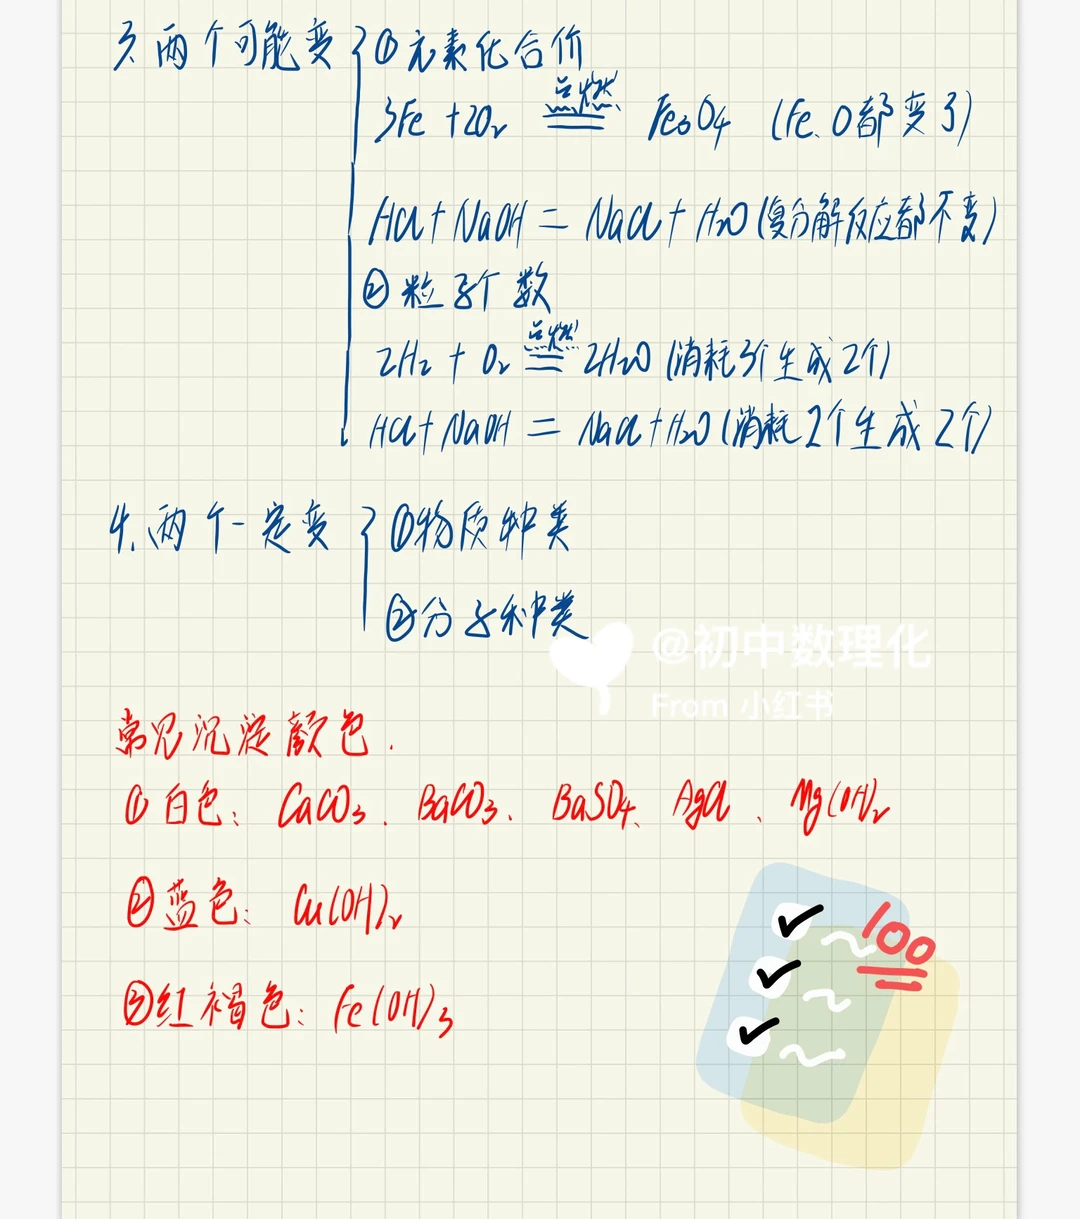 3、两个可能变 ①元素化合价
点燃
3Fe + 2O₂ == Fe₃O₄ (Fe、O都变了)
HCl + NaOH = NaCl + H₂O (复分解反应都不变)
②粒子个数
点燃
2H₂ + O₂ == 2H₂O (消耗3个生成2个)
HCl + NaOH = NaCl + H₂O (消耗2个生成2个)
4、两个一定变 ①物质种类
②分子种类
@初中数理化
From 小红书
常见沉淀颜色.
①白色: CaCO₃、BaCO₃、BaSO₄、AgCl、Mg(OH)₂
②蓝色: Cu(OH)₂
③红褐色: Fe(OH)₃
100